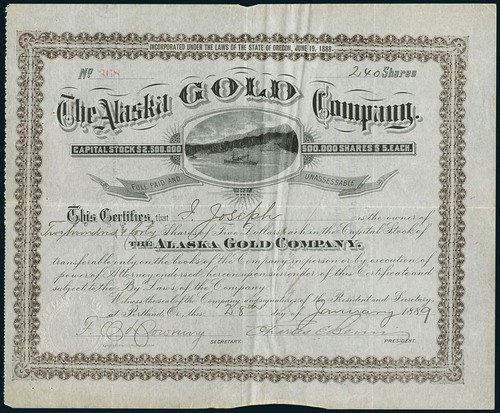 INCORPORATED UNDER THE LAWS OF THE STATE OF OREGON, JUNE 19, 1888.
No 368 240 Shares
The Alaska GOLD Company.
CAPITAL STOCK $2,500,000 500,000 SHARES $5. EACH.
FULL PAID AND UNASSESSABLE
This Certifies, that I. Joseph is the owner of
Two hundred & forty Shares of Five Dollars each in the Capital Stock of
THE ALASKA GOLD COMPANY.
transferable only on the books of the Company in person or by execution of
power of Attorney endorsed hereon upon surrender of this Certificate and
subject to the By Laws of the Company.
Witness the seal of the Company and signatures of the President and Secretary,
at Portland, Or. this 28th day of January 1889
Downing Charles
SECRETARY. PRESIDENT.